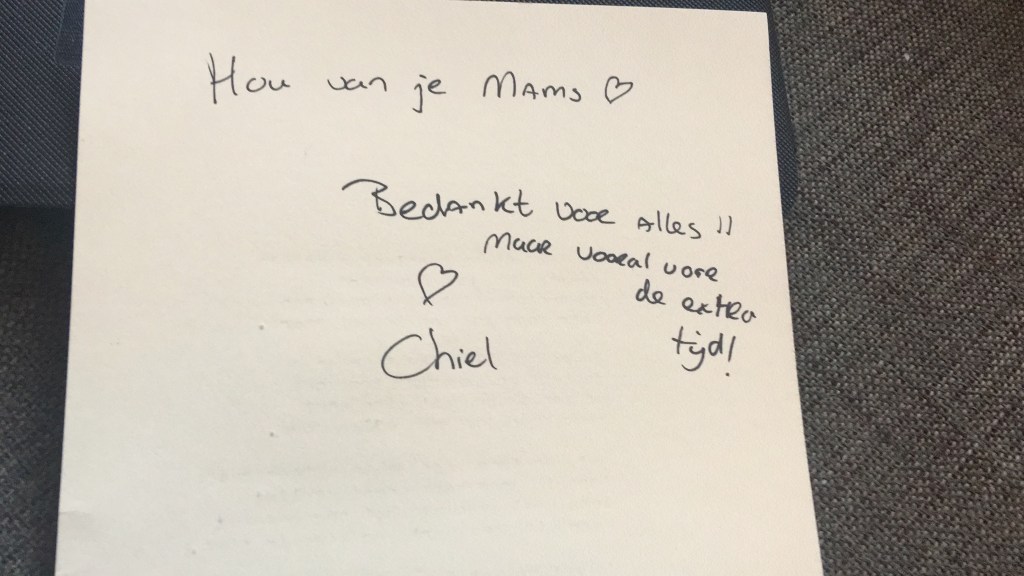 Hou van je Mams ♡
Bedankt voor Alles !!
Maar vooral voor
de extra
tijd!
♡
Chiel